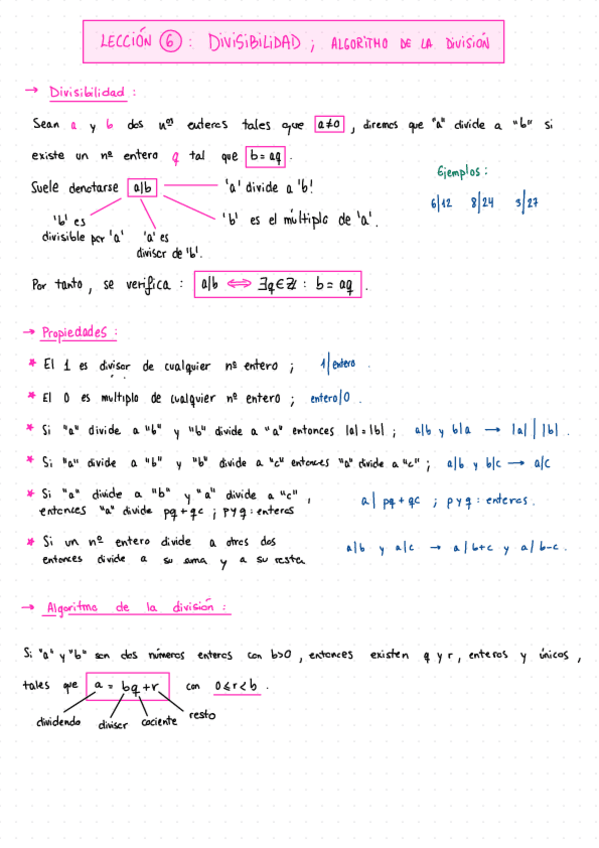 LECCIÓN 6 : DIVISIBILIDAD ; ALGORITMO DE LA DIVISIÓN
→ Divisibilidad :
Sean a y b dos nos enteros tales que a≠0 , diremos que "a" divide a "b" si
existe un nº entero q tal que b=aq .
Ejemplos :
Suele denotarse a|b
'a' divide a 'b'!
6|12 8|24 3|27
'b' es el múltiplo de 'a'.
'b' es
divisible por 'a'
'a' es
divisor de 'b'.
Por tanto , se verifica : a|b ⟺ ∃q∈ℤ : b = aq .
→ Propiedades :
* El 1 es divisor de cualquier nº entero ; 1|entero .
* El 0 es multiplo de cualquier nº entero ; entero|0 .
* Si "a" divide a "b" y "b" divide a "a" entonces |a|=|b| ; a|b y b|a → |a| | |b| .
* Si "a" divide a "b" y "b" divide a "c" entonces "a" divide a "c" ; a|b y b|c → a|c
* Si "a" divide a "b" y "a" divide a "c" ,
entonces "a" divide pq+qc ; p y q : enteros
a | pq+qc ; p y q : enteros .
* Si un nº entero divide a otros dos
entonces divide a su suma y a su resta
a|b y a|c → a|b+c y a|b-c .
→ Algoritmo de la división :
Si "a" y "b" son dos números enteros con b>0 , entonces existen q y r , enteros y únicos ,
tales que a = bq + r con 0≤r<b .
dividendo divisor cociente resto